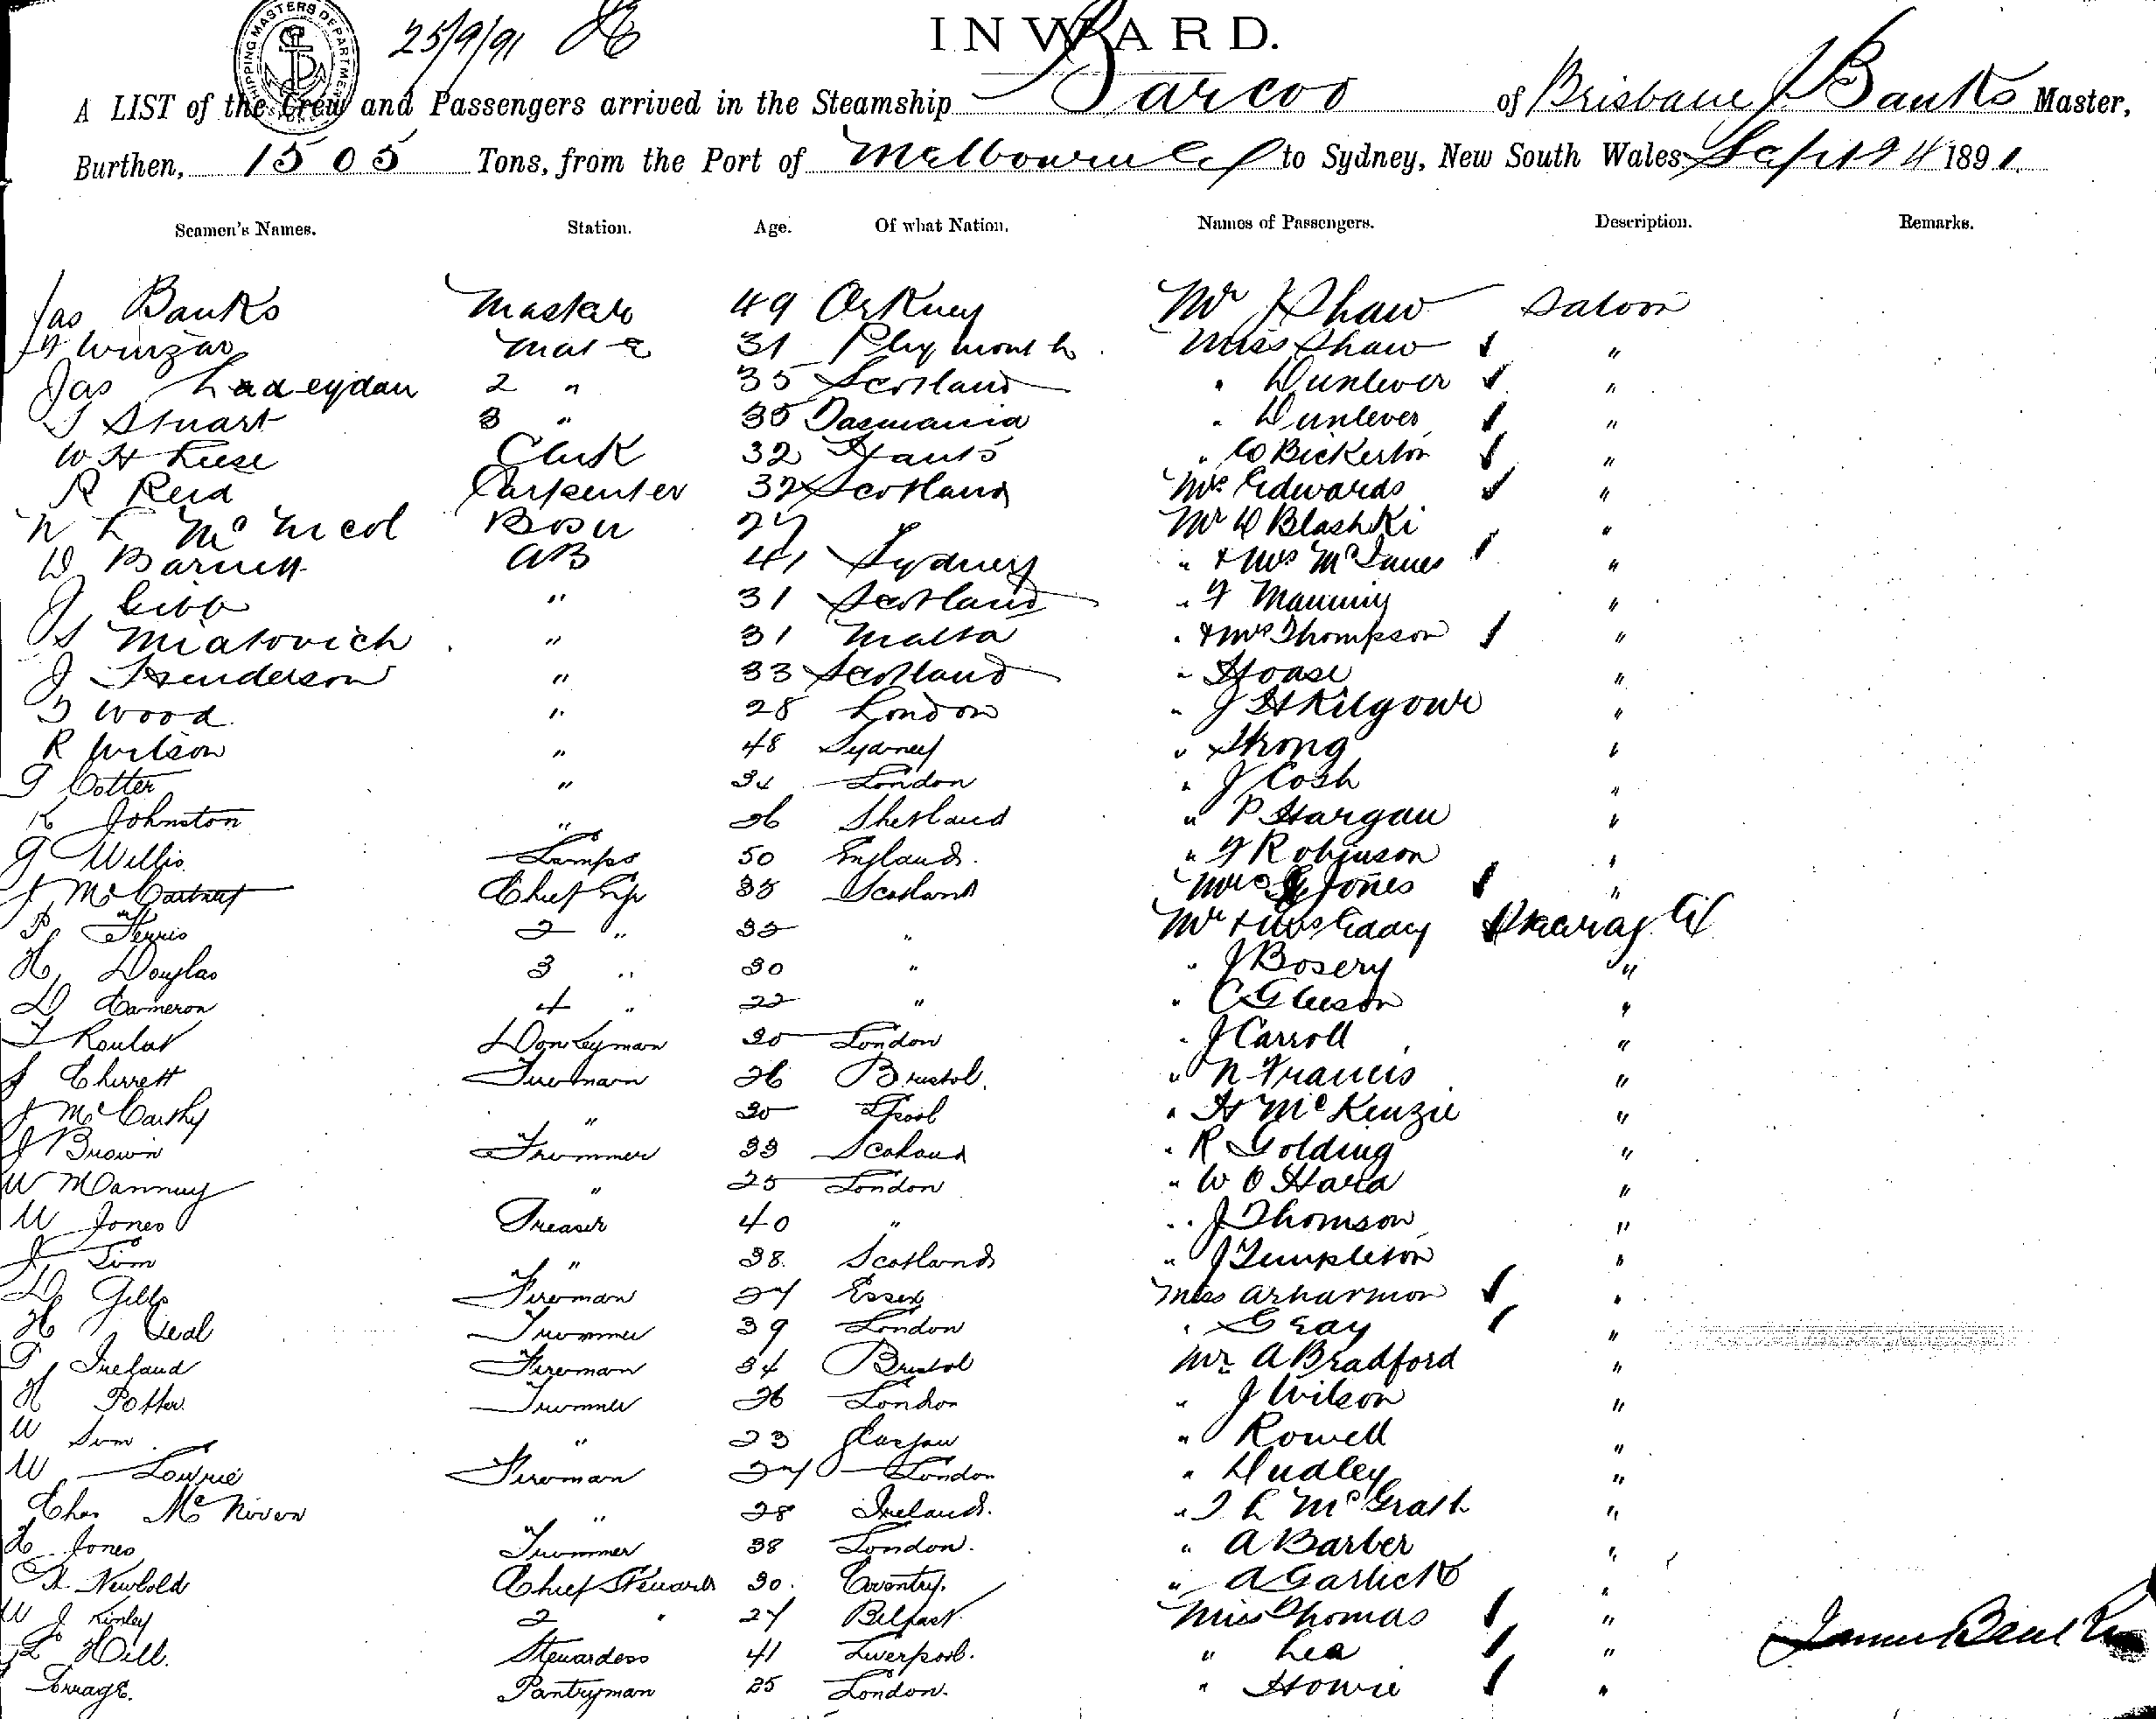 SHIPPING MASTERS DEPARTMENT
25/9/91
INWARD.
A LIST of the Crew and Passengers arrived in the Steamship Barcoo of Brisbane J Banks Master,
Burthen, 1505 Tons, from the Port of Melbourne to Sydney, New South Wales Sept 24 1891.
Seamen's Names. Station. Age. Of what Nation. Names of Passengers. Description. Remarks.
Jas Banks Master 49 Orkney Mr J Shaw Saloon
Winzar Mate 31 Plymouth Miss Shaw "
Jas 2 " 35 Scotland " Dunlever "
J Stuart 3 " 35 Tasmania " Dunlever "
W H Leese Clerk 32 Hants " Bickerton "
R Reid Carpenter 32 Scotland Mrs Edwards "
N L McNicol Bosn 27 Mr D Blashki "
D Barnett AB 41 Sydney " & Mrs McInnes "
J Gibb " 31 Scotland " F Manning "
S Miatovich " 31 Malta " & Mrs Thompson "
J Henderson " 33 Scotland " Hoase "
T Wood " 28 London " J H Kilgour "
R Wilson " 48 Sydney " Strong "
G Cotter " 34 London " J Cosh "
K Johnston " 26 Shetland " P Hargan "
G Willis Lamps 50 England. " F Robinson "
J McCartney Chief Eng 35 Scotland Mrs Jones "
P Ferris 2 " 32 " Mr & Mrs Eddy Steerage
H Douglas 3 " 30 " " J Bosery "
D Cameron 4 " 22 " " C Gleeson "
Donkeyman 30 London " J Carroll "
J Cherrett Fireman 26 Bristol. " N Francis "
J McCarthy " 30 Lpool " H McKenzie "
J Brown Trimmer 33 Scotland " R Golding "
W Manning " 25 London " W O Hara "
W Jones Greaser 40 " " J Thomson "
J Sim " 38. Scotland " J Templeton "
D Gibbs Fireman 27 Essex Miss "
H Teal Trimmer 39 London " Gray "
G Ireland Fireman 34 Bristol Mr A Bradford "
H Potter Trimmer 26 London " J Wilson "
W Sim " 23 Glasgow " Rowell "
W Lowrie Fireman 27 London " Dudley "
Chas McNiven " 28 Ireland. " J L McGrath "
H Jones Trimmer 38 London. " A Barber "
A. Newbold Chief Steward 30. Coventry. " A Garlick "
W J Kinley 2 " 27 Belfast Miss Thomas "
L Hill. Stewardess 41 Liverpool. " Lea "
Sorrage. Pantryman 25 London. " Howie "
James Banks